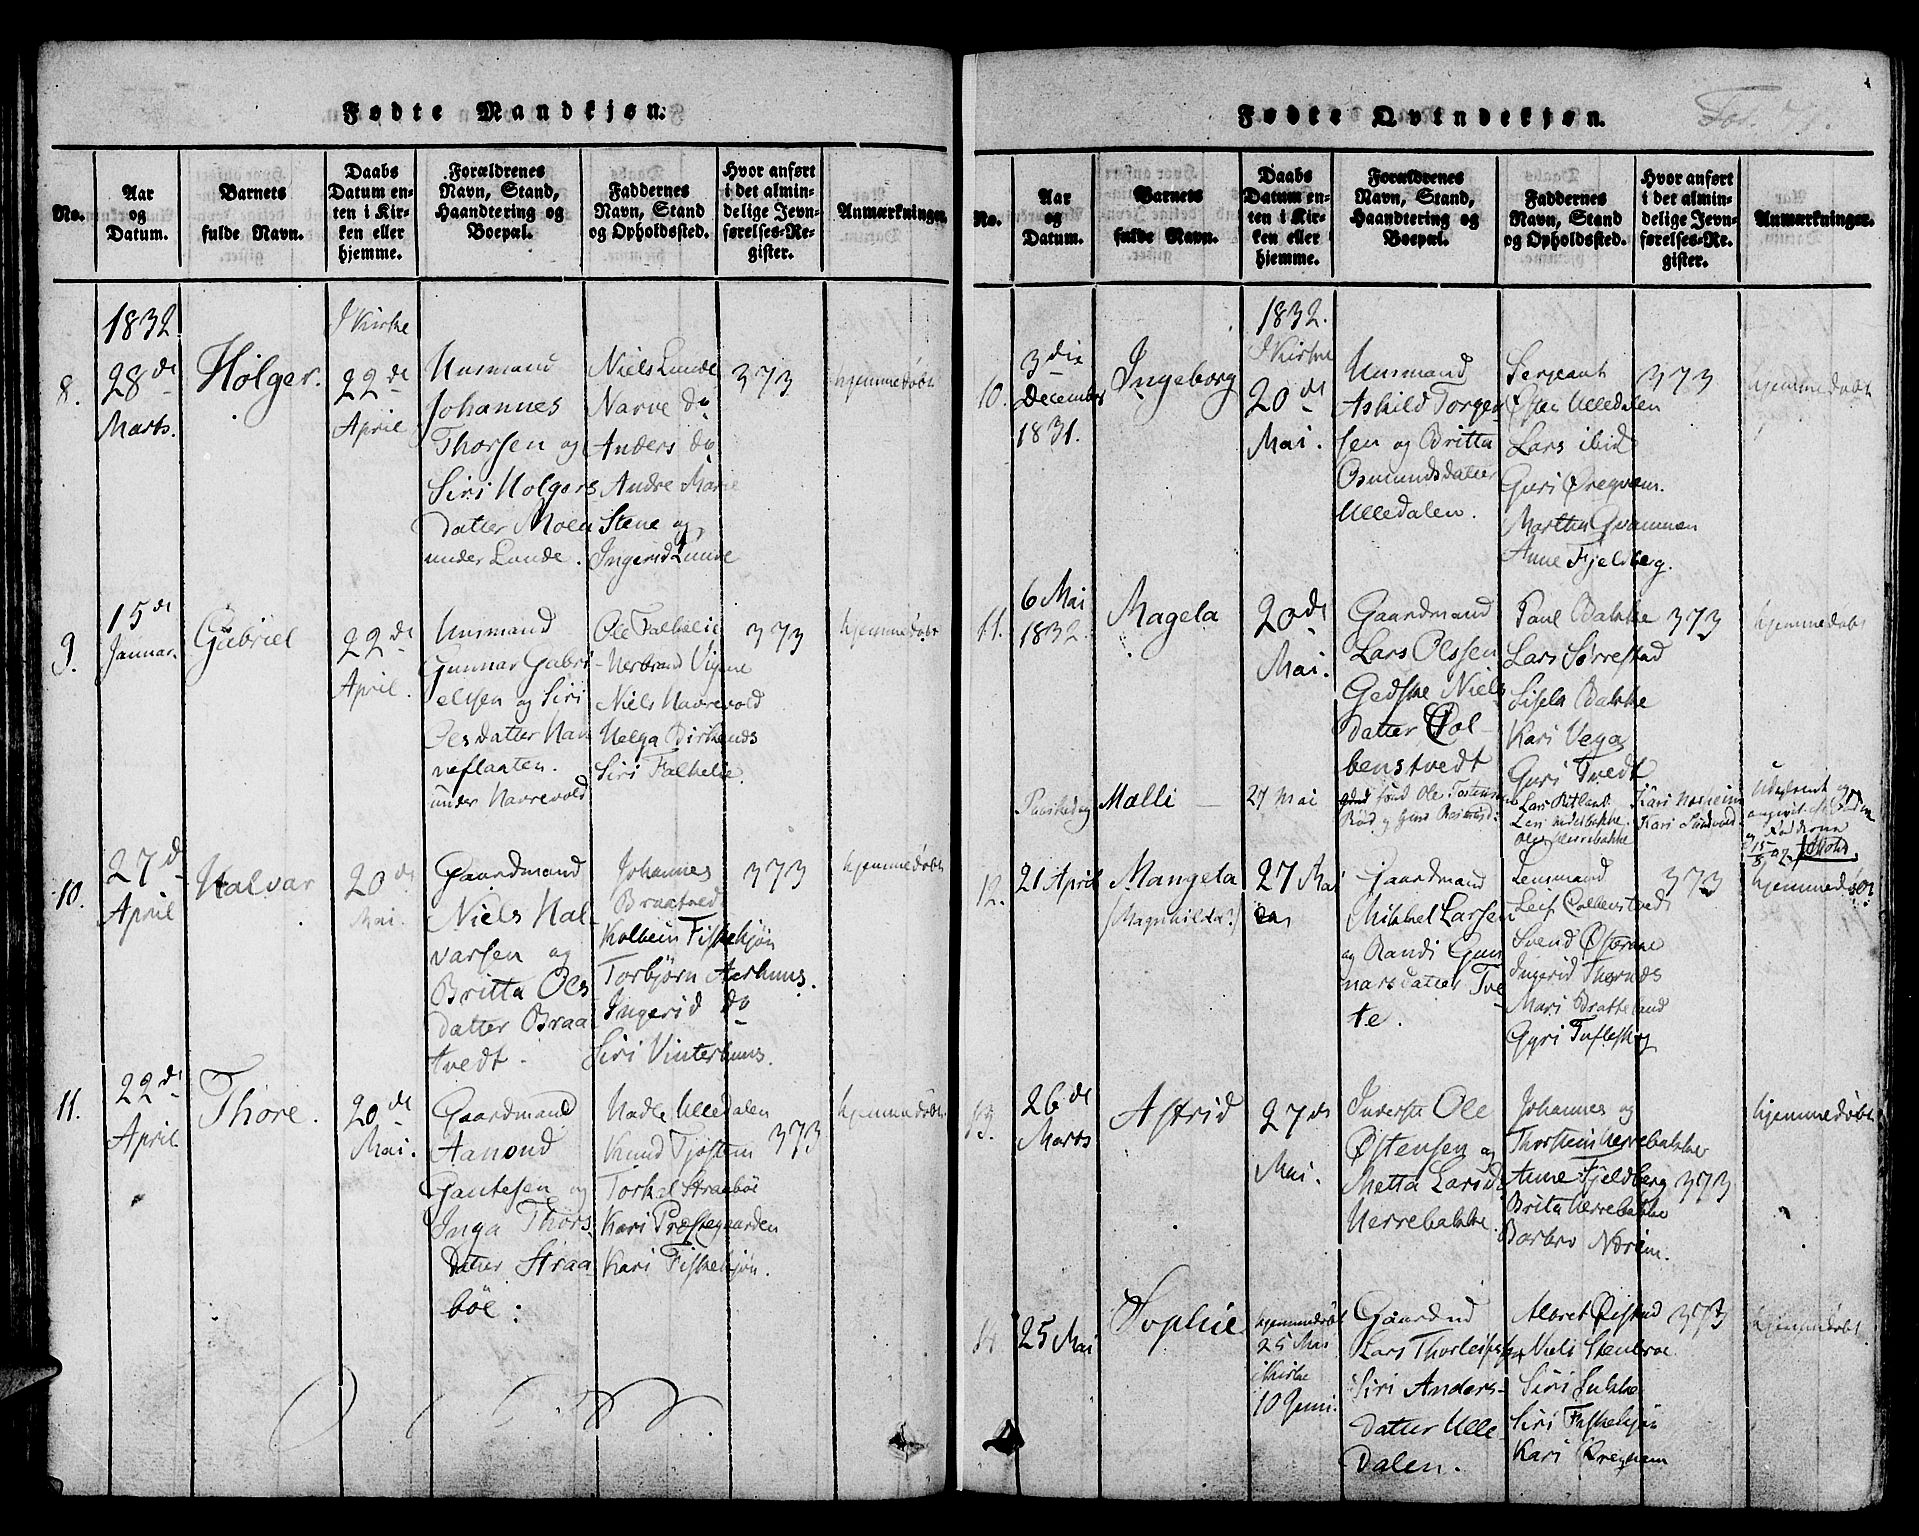 Fødte Mandkjøn.
No.
Aar
og
Datum.
Barnets
fulde Navn.
Daabs
Datum en-
ten i Kir-
ken eller
hjemme.
Forældrenes
Navn, Stand,
Haandtering og
Boepæl.
Faddernes
Navn, Stand
og Opholdssted.
Hvor anført
i det almin-
delige Jevn-
førelses-Re-
gister.
Anmærkninger.
8.
1832
28de
Marts.
Holger.
I Kirke
22de
April
Huusmand
Johannes
Thorsen og
Siri Holgers
datter Moen
under Lunde.
Niels Lunde
Narve do
Anders do
Andre Marie
Stene og
Ingerid Lunde
373
hjemmedøbt
9.
15de
Januar.
Gabriel
22de
April.
Huusmand
Gunnar Gabri
elsen og Siri
Olesdatter Hav
reflaaten.
under Havrevold
Ole Falhelie
Herbrand Vigene
Niels Havrevold
Helga Birkenes
Siri Falhelie
373
hjemmedøbt
10.
27de
April
Halvar
20de
Mai.
Gaardmand
Niels Hal
varsen og
Britta Ols
datter Braa
tvedt.
Johannes
Braatvedt
Kolbein Fiskekjøn
Torbjørn Aarhuus.
Ingerid do
Siri Vinterhuus.
373
hjemmedøbt
11.
22de
April
Thore.
20de
Mai.
Gaardmand
Aamond
Gautesen og
Inga Thors
datter Straa-
böe.
Hadle Ulledalen
Knud Tjostem
Torkel Straaböe
Kari Præstegaarden
Kari Fiskekjøn.
373
hjemmedøbt
Fødte Qvindekjøn.
Fol. 77.
No.
Aar
og
Datum.
Barnets
fulde Navn.
Daabs
Datum en-
ten i Kir-
ken eller
hjemme.
Forældrenes
Navn, Stand,
Haandtering og
Boepæl.
Faddernes
Navn, Stand
og Opholdssted.
Hvor anført
i det almin-
delige Jevn-
førelses-Re-
gister.
Anmærkninger.
10.
3die
December
1831.
Ingeborg
1832.
I Kirke
20de
Mai.
Huusmand
Askild Torger
sen og Britta
Osmundsdatter
Ulledalen.
Sergeant
Østen Ulledalen
Lars ibid
Guri Øregvam.
Martha Qvammen
Anne Fjeldberg.
373
hjemmedøbt
11.
6 Mai
1832.
Magela
20de
Mai.
Gaardmand
Lars Olssen
Gedske Niels
datter Col-
benstvedt
Paul Bakke
Lars Sørrestad
Sisela Bakke
Kari Vega
Guri Tvedt
373
hjemmedøbt
Paaskedag
Malli
27 Mai
Ole Tostensen
Lars Østland
Kari
Kari
Udeglemt og
12.
21 April
Mangela
(Magnhilda?)
27 Mai
Gaardmand
Mikkel Larsen
og Randi Gun
narsdatter Tve
te.
Lensmand
Leif Colbenstvedt
Svend Østerøe
Ingerid Thornæs
Mari Bratteland
Gyri Tufteskog
373
hjemmedøbt
13.
26de
Marts
Astrid
27de
Mai.
Inderste Ole
Østensen og
Metta Larsd.
Herrebakke.
Johannes og
Thorstein Herrebakke
Anne Fjeldberg
Brita Herrebakke
Barbro Nærim.
373
hjemmedøbt
14
25 Mai
Sophie
hjemmedøbt
25 Mai
i Kirke
10 Juni.
Gaardmd
Lars Thorleifsen
Siri Anders-
datter Ulle
dalen.
Albret Øistad
Niels Stenbroe
Siri Lukke
Siri Fiskekjøn
Kari Øregvam
373
hjemmedøbt